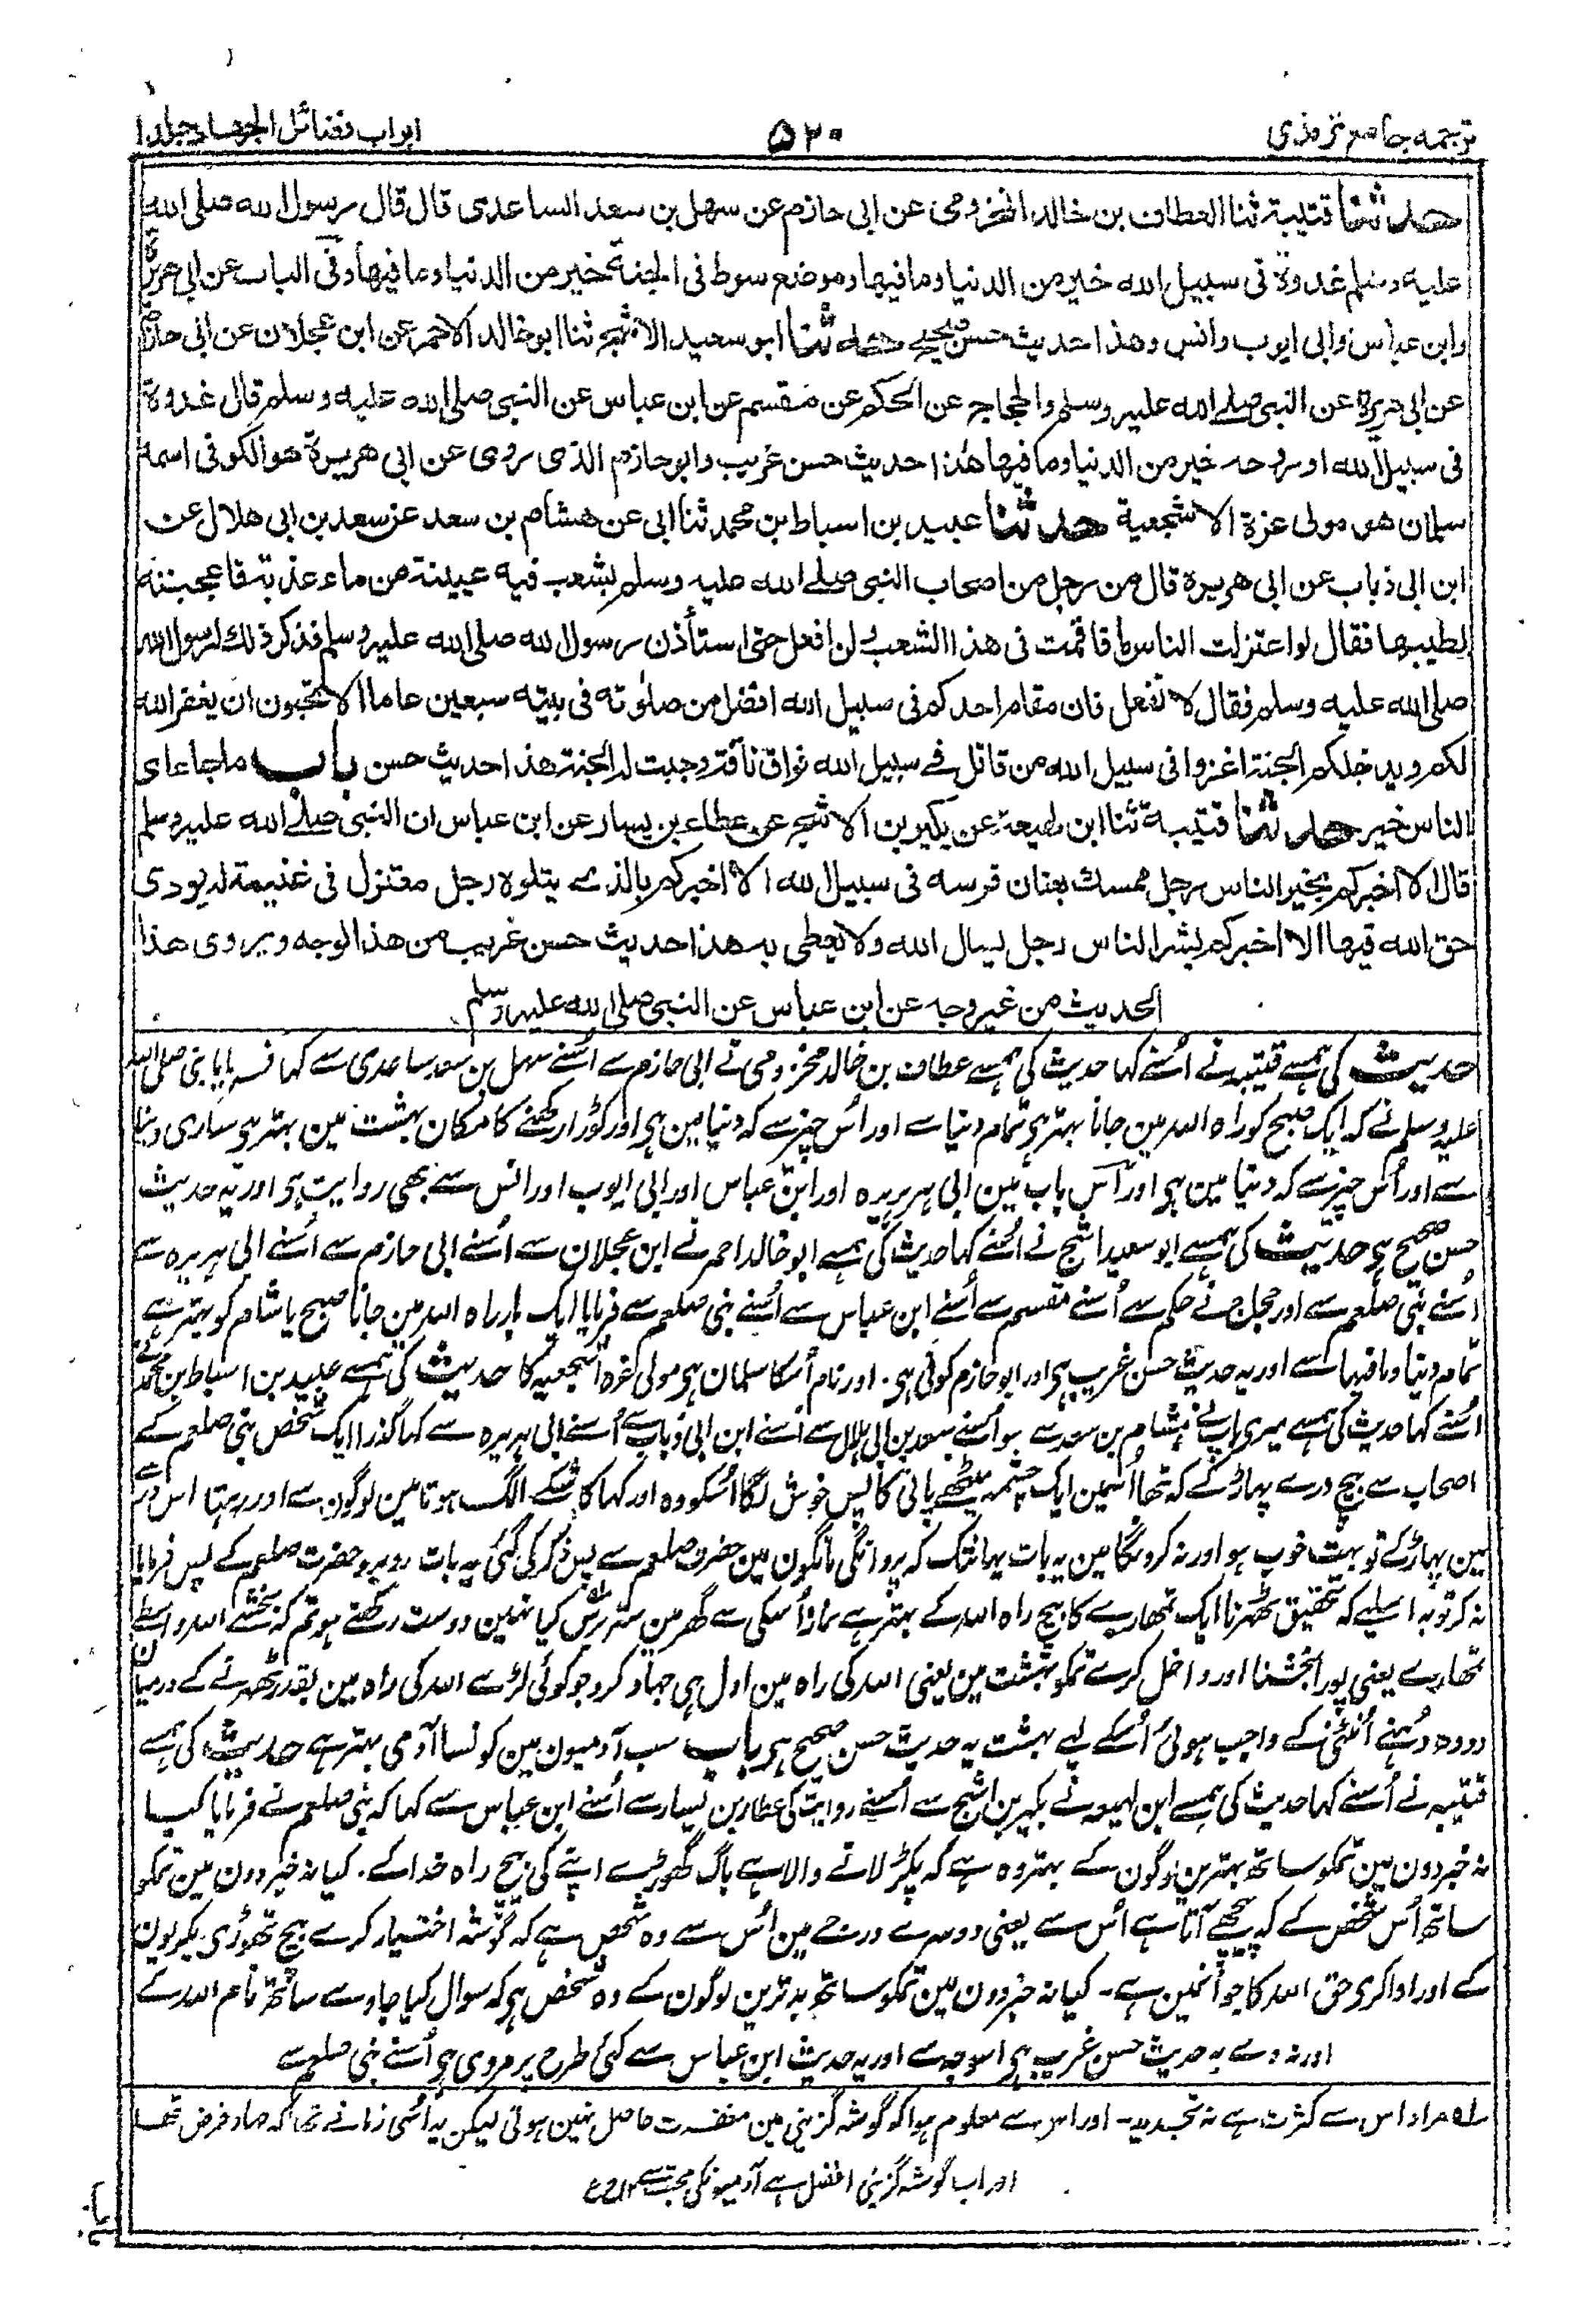 ترجمه جامع ترمذی
۵۲۰
ابواب فضائل الجهاد جلد۱
حدثنا قتيبة ثنا العطاف بن خالد المخزومى عن ابى حازم عن سهل بن سعد الساعدى قال قال رسول الله صلى الله
عليه وسلم غدوة فى سبيل الله خير من الدنيا وما فيها وموضع سوط فى الجنة خير من الدنيا وما فيها وفى الباب عن ابى هريرة
وابن عباس وابى ايوب وانس وهذا حديث حسن صحيح حدثنا ابو سعيد الاشج ثنا ابو خالد الاحمر عن ابن عجلان عن ابى حازم
عن ابى هريرة عن النبى صلى الله عليه وسلم والحجاج عن الحكم عن مقسم عن ابن عباس عن النبى صلى الله عليه وسلم قال غدوة
فى سبيل الله او روحه خير من الدنيا وما فيها هذا حديث حسن غريب وابو حازم الذى روى عن ابى هريرة هو الكوفى اسمه
سلمان هو مولى عزة الاشجعية حدثنا عبيد بن اسباط بن محمد ثنا ابى عن هشام بن سعد عن سعد بن ابى هلال عن
ابن ابى ذباب عن ابى هريرة قال من رجل من اصحاب النبى صلى الله عليه وسلم بشعب فيه عيينة من ماء عذبة فاعجبته
لطيبها فقال لو اعتزلت الناس فاقمت فى هذا الشعب ولن افعل حتى استأذن رسول الله صلى الله عليه وسلم فذكر ذلك لرسول الله
صلى الله عليه وسلم فقال لا تفعل فان مقام احدكم فى سبيل الله افضل من صلوته فى بيته سبعين عاما الا تحبون ان يغفر الله
لكم ويدخلكم الجنة اغزوا فى سبيل الله من قاتل فى سبيل الله فواق ناقة وجبت له الجنة هذا حديث حسن باب ما جاء اى
الناس خير حدثنا قتيبة ثنا ابن لهيعة عن بكير بن الاشج عن عطاء بن يسار عن ابن عباس ان النبى صلى الله عليه وسلم
قال الا اخبركم بخير الناس رجل ممسك بعنان فرسه فى سبيل الله الا اخبركم بالذى يتلوه رجل معتزل فى غنيمة له يودى
حق الله فيها الا اخبركم بشر الناس رجل يسال الله ولا يعطى به هذا حديث حسن غريب من هذا الوجه ويروى هذا
الحديث من غير وجه عن ابن عباس عن النبى صلى الله عليه وسلم
حدیث کی ہمسے قتیبہ نے اُسنے کہا حدیث کی ہمسے عطاف بن خالد مخزومی نے ابی حازم سے اُسنے سہل بن سعد ساعدی سے کہا فرمایا نبی صلی اللہ
علیہ وسلم نے کہ ایک صبح کو راہ اللہ مین جانا بہتر ہی تمام دنیا سے اور اُس چیز سے کہ دنیا مین ہی اور کوڑا رکھنے کا مکان بہشت مین بہتر ہی ساری دنیا
سے اور اُس چیز سے کہ دنیا مین ہی اور اس باب مین ابی ہریرہ اور ابن عباس اور ابی ایوب اور انس سے بھی روایت ہی اور یہ حدیث
حسن صحیح ہی حدیث کی ہمسے ابو سعید اشج نے اُسنے کہا حدیث کی ہمسے ابو خالد احمر نے ابن عجلان سے اُسنے ابی حازم سے اُسنے ابی ہریرہ سے
اُسنے نبی صلعم سے اور حجاج نے حکم سے اُسنے مقسم سے اُسنے ابن عباس سے اُسنے نبی صلعم سے فرمایا ایک بار راہ اللہ مین جانا صبح یا شام کو بہتر ہے
تمام دنیا و ما فیہا سے اور یہ حدیث حسن غریب ہی اور ابو حازم کوفی ہی۔ اور نام اُسکا سلمان ہی مولی عزہ اشجعیہ کا حدیث کی ہمسے عبید بن اسباط بن محمد نے
اُسنے کہا حدیث کی ہمسے میری باپنے ہشام بن سعد سے اُسنے سعد بن ابی ہلال سے اُسنے ابن ابی ذباب سے اُسنے ابی ہریرہ سے کہا گذرا ایک شخص نبی صلعم کے
اصحاب سے بیچ درے پہاڑ کے کہ تھا اُسمین ایک چشمہ میٹھے پانی کا پس خوش لگا اُسکو وہ اور کہا کاشکے الگ ہوتا مین لوگون سے اور رہتا اس درے
مین پہاڑ کے تو بہت خوب ہو اور نہ کرونگا مین یہ بات یہانتک کہ پروانگی مانگون مین حضرت صلعم سے پس ذکر کی گئی یہ بات روبرو حضرت صلعم کے پس فرمایا
نہ کر تو یہ اسلیے کہ تحقیق ٹھہرنا ایک تمھارے کا بیچ راہ اللہ کے بہتر ہے نماز اُسکی سے گھر مین ستر برس کیا نہین دوست رکھتے ہو تم کہ بخشے اللہ واسطے
تمھارے یعنی پورا بخشنا اور داخل کرے تمکو بہشت مین یعنی اللہ کی راہ مین اول ہی جہاد کرو جو کوئی لڑے اللہ کی راہ مین بقدر ٹھہرنے کے درمیان
دودہ دُہنے اُنٹنی کے واجب ہوئی اُسکے لیے بہشت یہ حدیث حسن صحیح ہی باب سب آدمیون مین کونسا آدمی بہتر ہے حدیث کی ہمسے
قتیبہ نے اُسنے کہا حدیث کی ہمسے ابن لہیعہ نے بکیر بن اشج سے اُسنے روایت کی عطار بن یسار سے اُسنے ابن عباس سے کہا کہ نبی صلعم نے فرمایا کیا
نہ خبر دون مین تمکو ساتھ بہترین لوگون کے بہتر وہ ہے کہ پکڑ لانے والا ہے باگ گھوڑے اپنے کی بیچ راہ خدا کے۔ کیا نہ خبر دون مین تمکو
ساتھ اُس شخص کے کہ پیچھے آتا ہے اُس سے یعنی دوسرے درجے مین اُس سے وہ شخص ہے کہ گوشہ اختیار کرے بیچ تھوڑی بکریون
کے اور ادا کری حق اللہ کا جو اُنمین ہے۔ کیا نہ خبر دون مین تمکو ساتھ بدترین لوگون کے وہ شخص ہی کہ سوال کیا جاوے ساتھ نام اللہ کے
اور نہ دے یہ حدیث حسن غریب ہی اسوجہ سے اور یہ حدیث ابن عباس سے کئی طرح پر مروی ہی اُسنے نبی صلعم سے
۱ہ مراد اس سے کثرت ہے نہ تحدید۔ اور اس سے معلوم ہوا کو گوشہ گزینی مین مغفرت حاصل نہین ہوتی لیکن یہ اُسی زمانے تھا کہ جہاد فرض تھا
اور اب گوشہ گزینی افضل ہے آدمیونکی صحبت سے ۱۲